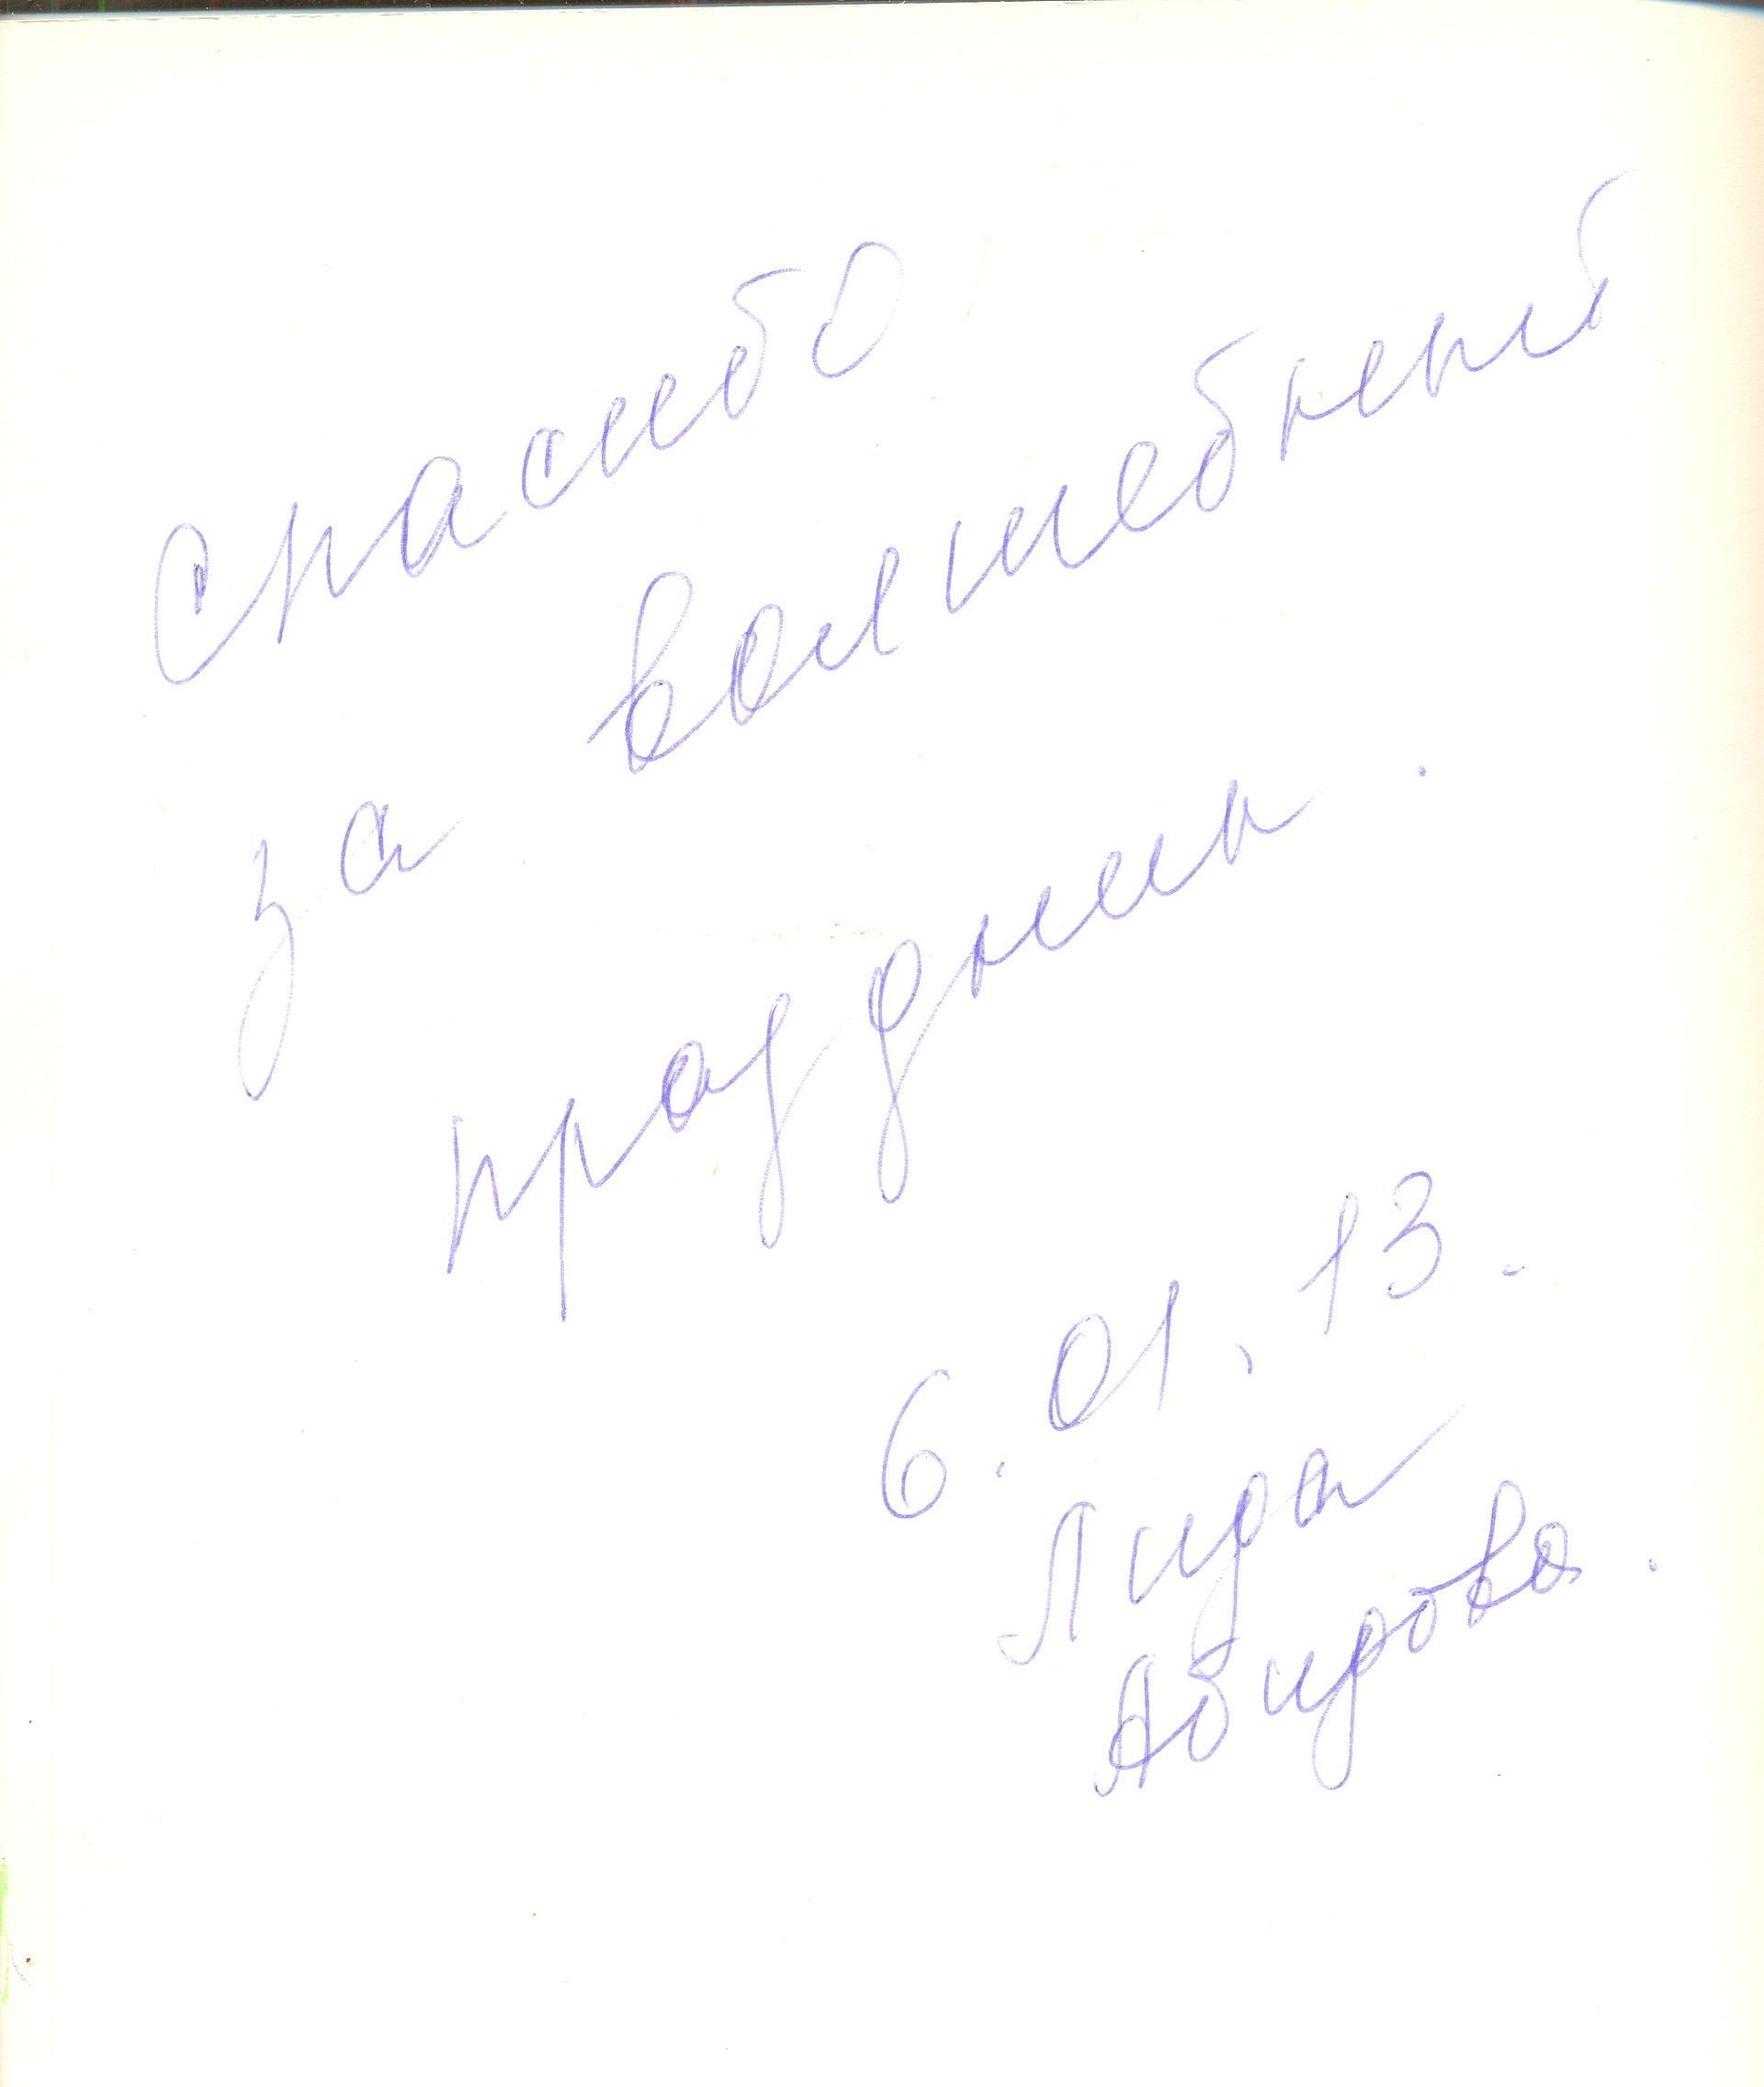 Спасибо
за волшебный
праздник.
6.01.13.
Лира
Абирова.